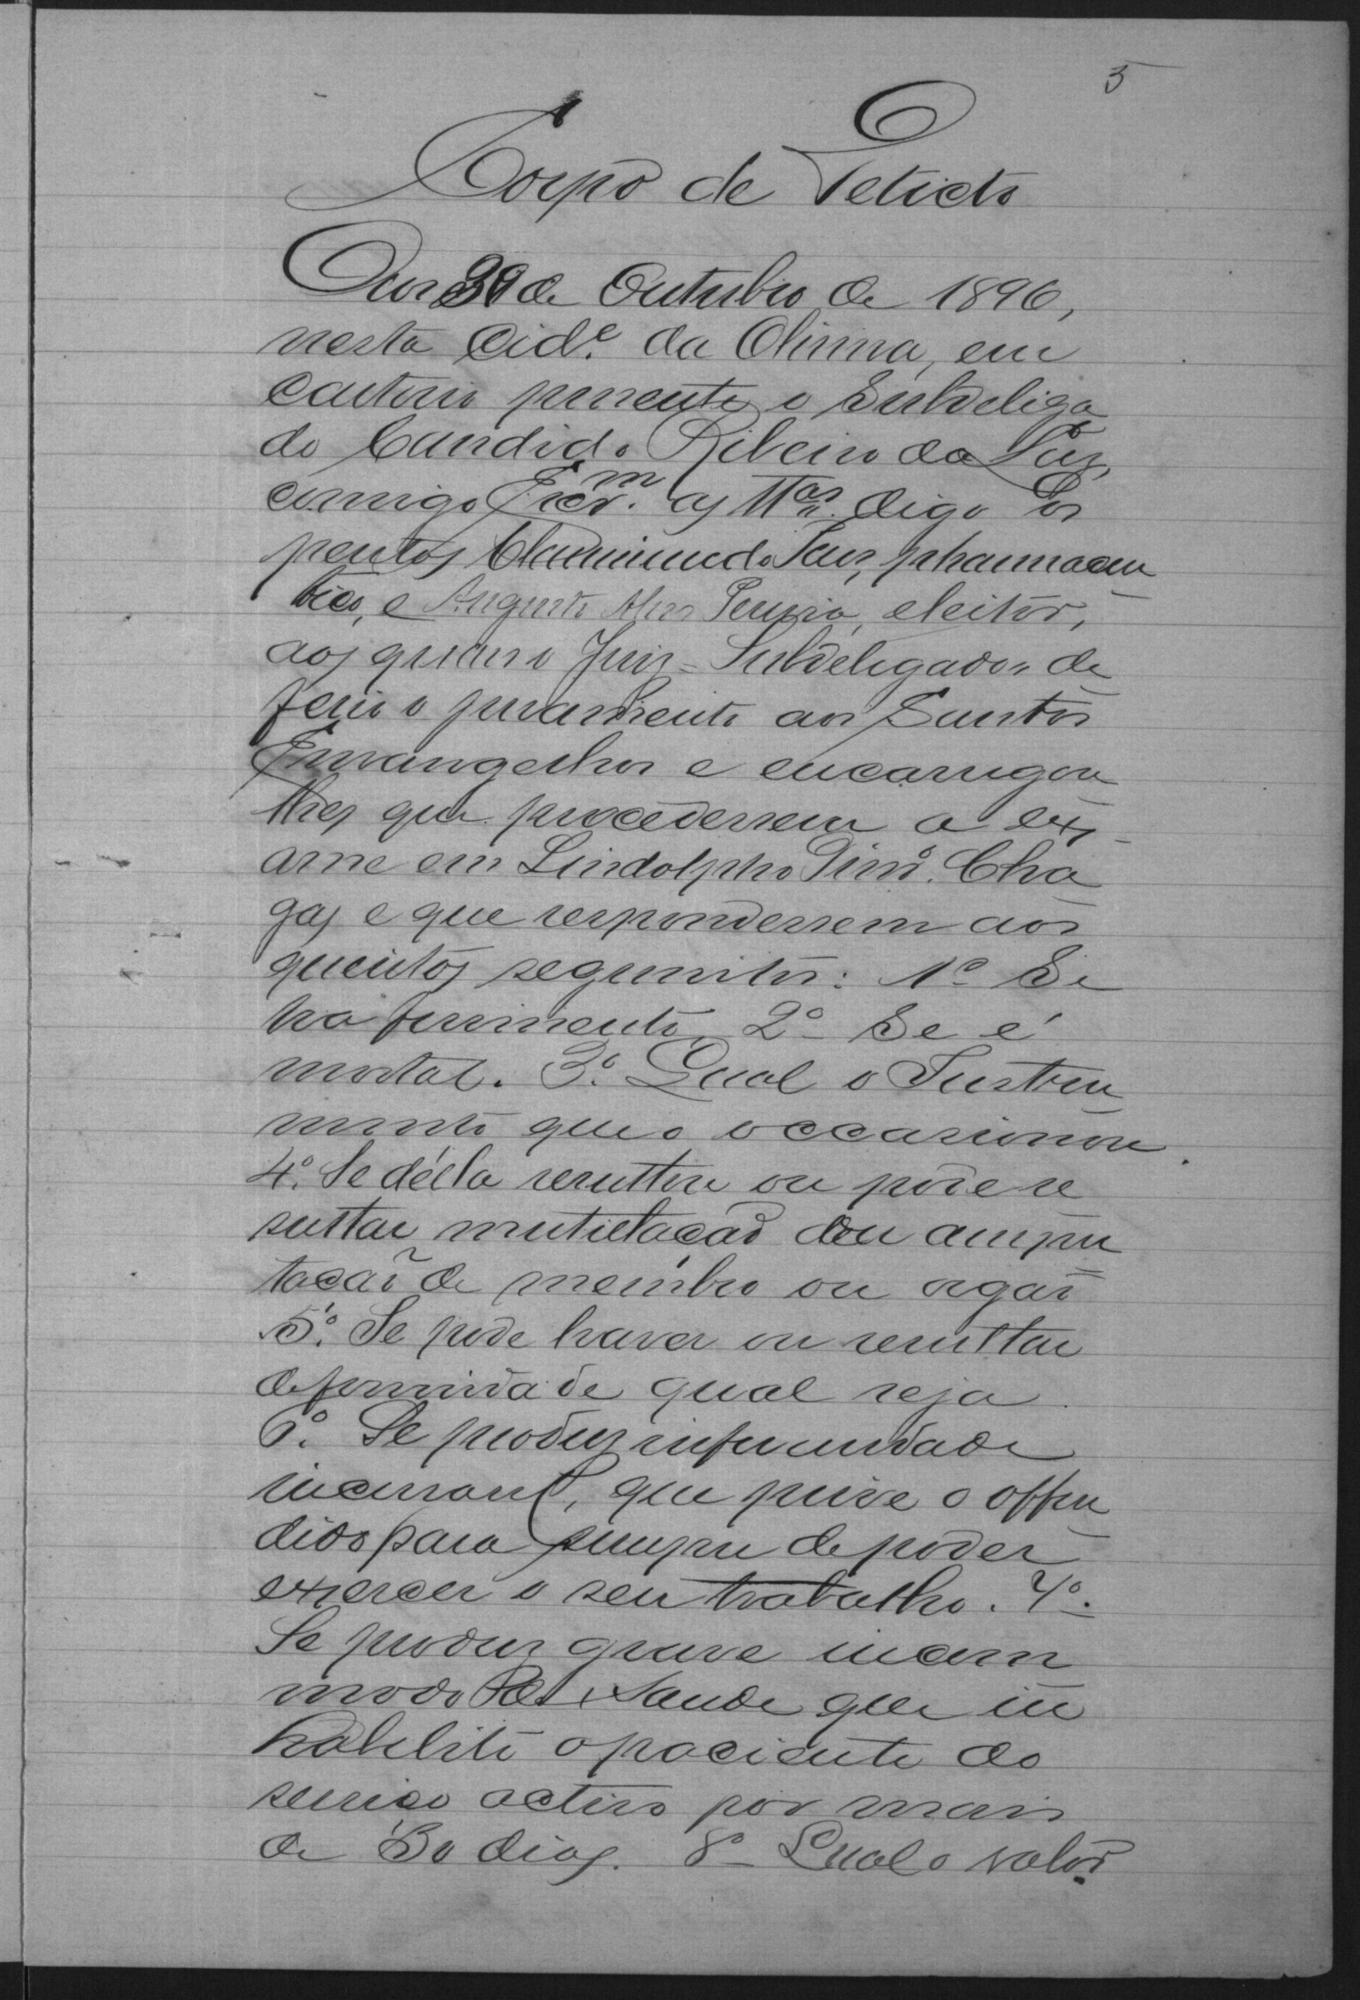 5
Corpo de Delicto
Aos 30 de Outubro de 1896,
nesta Cid.e da Olimia, em
Cartorio perante o Subdeliga
do Candido Ribeiro da Luz,
comigo Escr.m as ttas. digo os
peritos Claumimundo Luz, pharmaceu
tico, e Augusto Alves Pereira, eleitor,
aos quaes o Juiz Subdelegado, de
ferio o juramento aos Santos
Envangelhos e encarregou
lhes que procedessem a ex
ame em Lindolpho Pinr.o Cha
gas e que respondessem aos
quesitos seguintes: 1º Se
ha ferimento, 2º Se é
mortal. 3º. Qual o Instru
mento que o occasionou.
4º. Se délla resultou ou póde re
sultar mutilação ou ampu
tação de membro ou orgão
5º. Se pode haver ou resultar
deformidade qual seja
6º. Se produz infirmidade
incuravel, que prive o offen
dido para sempre de poder
exercer o seu trabalho. 7º.
Se produz grave incom
modo de saude que in
habelite o paciente do
serviço activo por mais
de 30 dias. 8º Qual o valor